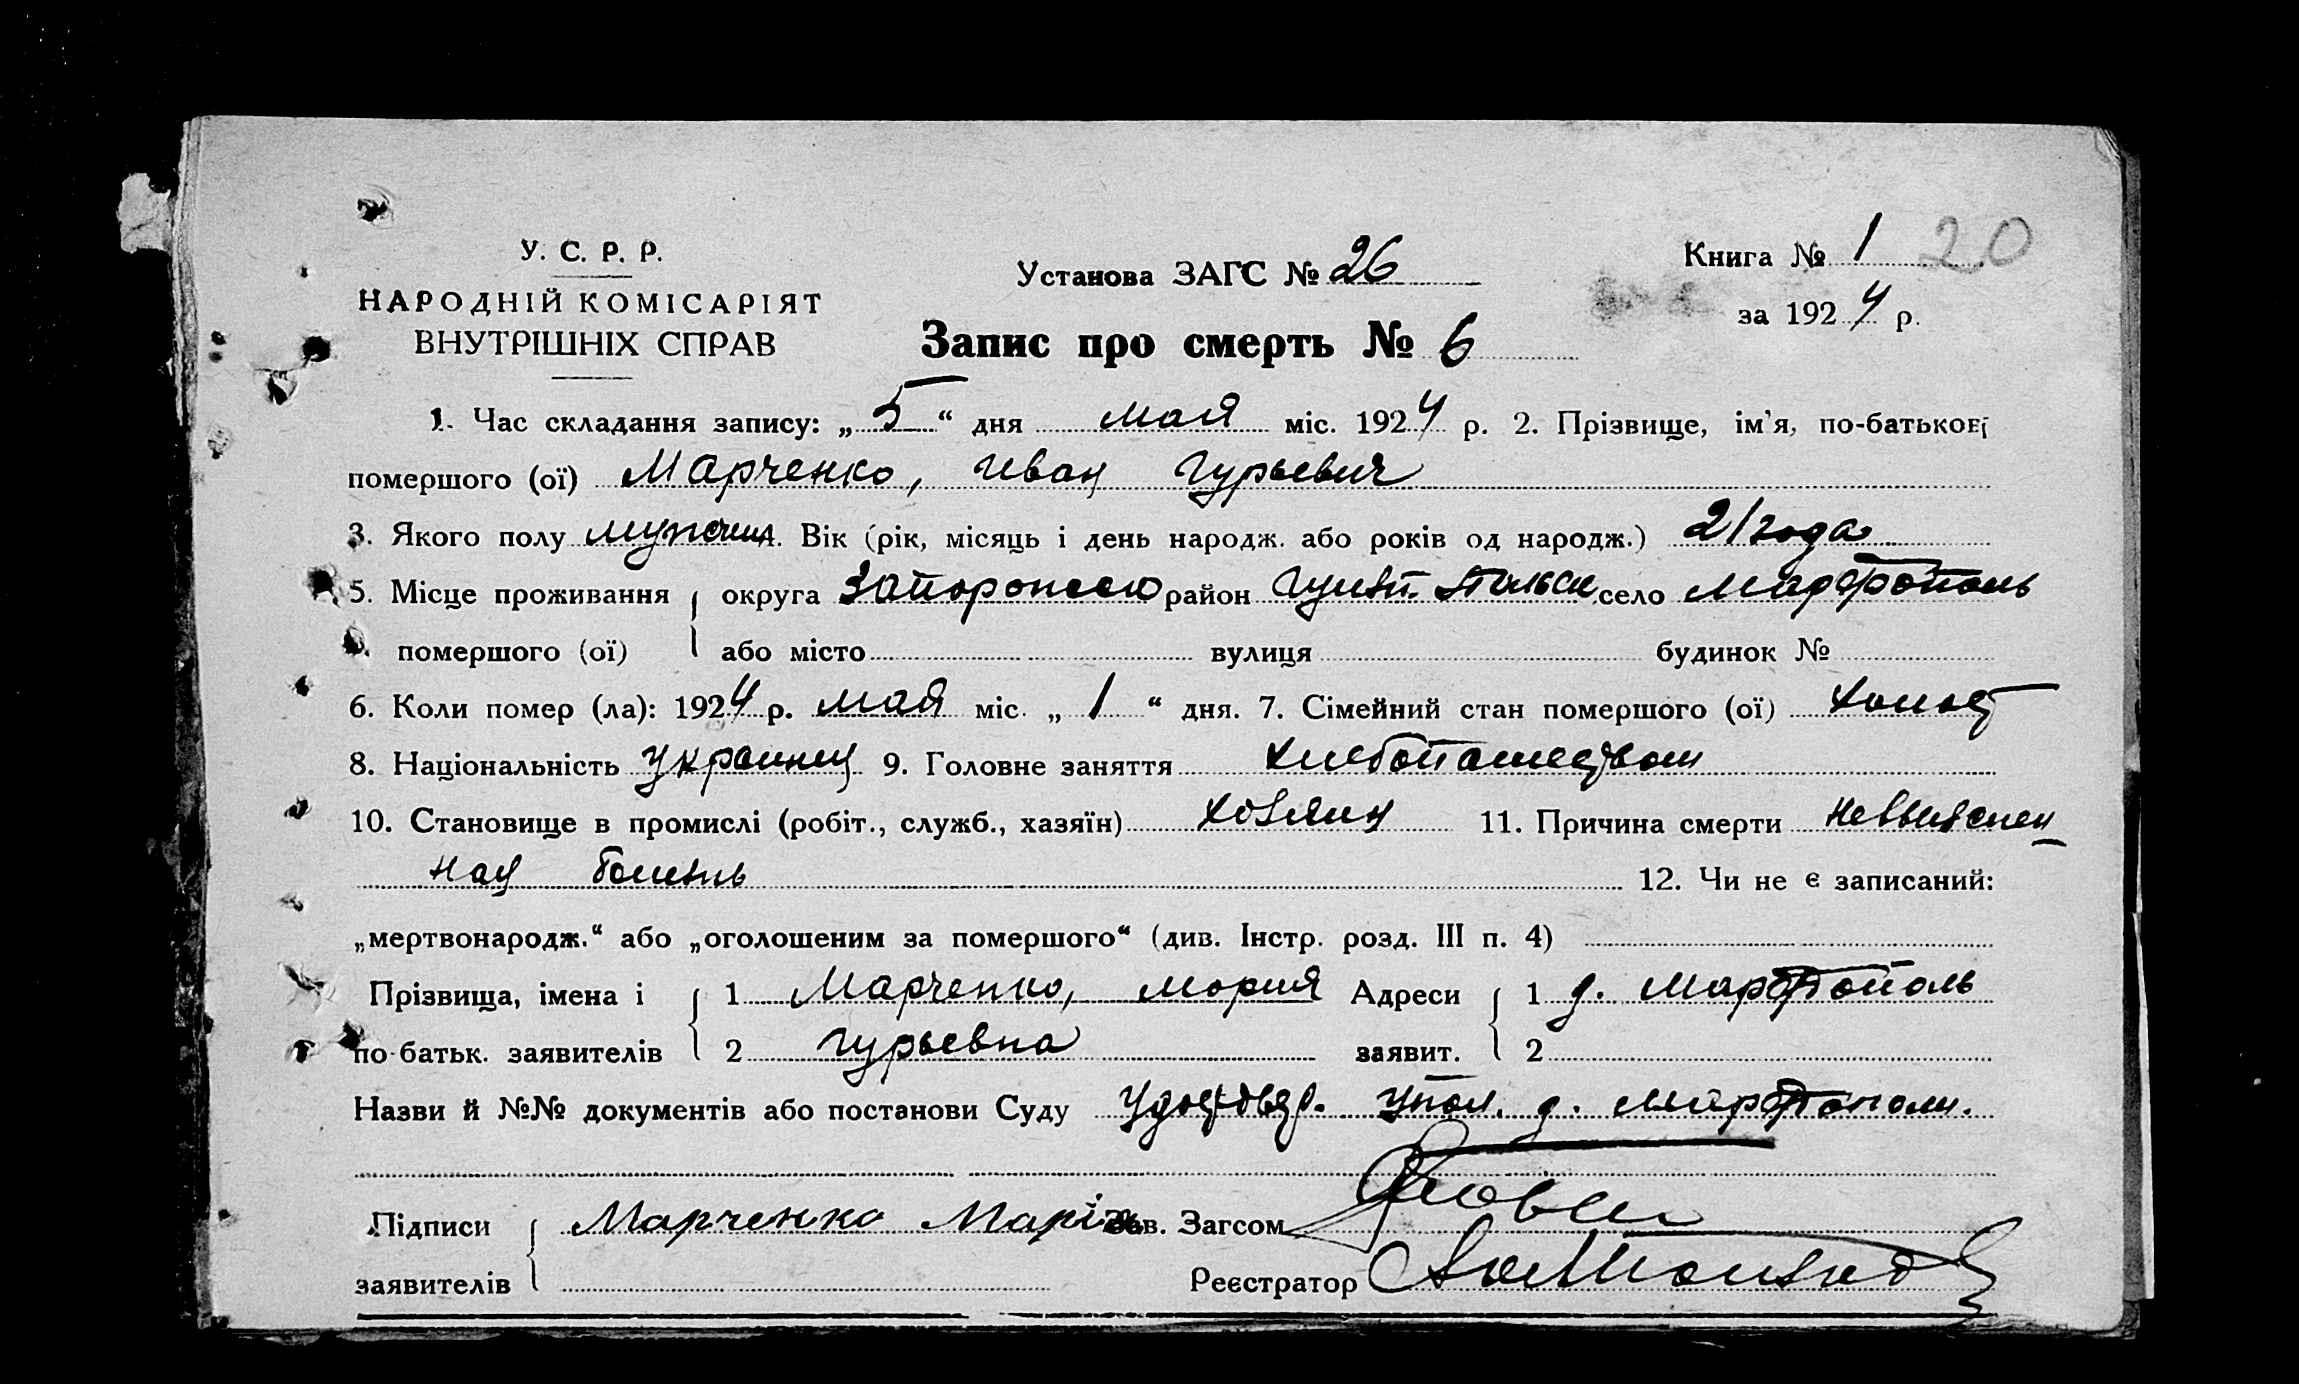 У. С. Р. Р.
НАРОДНІЙ КОМІСАРІЯТ
ВНУТРІШНІХ СПРАВ
Установа ЗАГС № 26
Книга № 1 20
за 1924 р.
Запис про смерть № 6
1. Час складання запису: „5“ дня мая міс. 1924 р. 2. Прізвище, ім’я, по-батькові
помершого (ої) Марченко, Иван Гурьевич
3. Якого полу мужчина. Вік (рік, місяць і день народж. або років од народж.) 21 года
5. Місце проживання округа район село Марфополь
помершого (ої) або місто вулиця будинок №
6. Коли помер (ла): 1924 р. мая міс. „1“ дня. 7. Сімейний стан помершого (ої) холост
8. Національність украинец 9. Головне заняття хлебопашеством
10. Становище в промислі (робіт., служб., хазяїн) хозяин 11. Причина смерти невыяснен
ная болезнь 12. Чи не є записаний:
„мертвонародж.“ або „оголошеним за помершого“ (див. Інстр. розд. III п. 4)
Прізвища, імена і 1 Марченко, Мория Адреси 1 д. Марфополь
по-батьк. заявителів 2 Гурьевна заявит. 2
Назви й №№ документів або постанови Суду Удостовер. упол. д. Марфополи.
Підписи Марченко Марія Зав. Загсом
заявителів Реєстратор